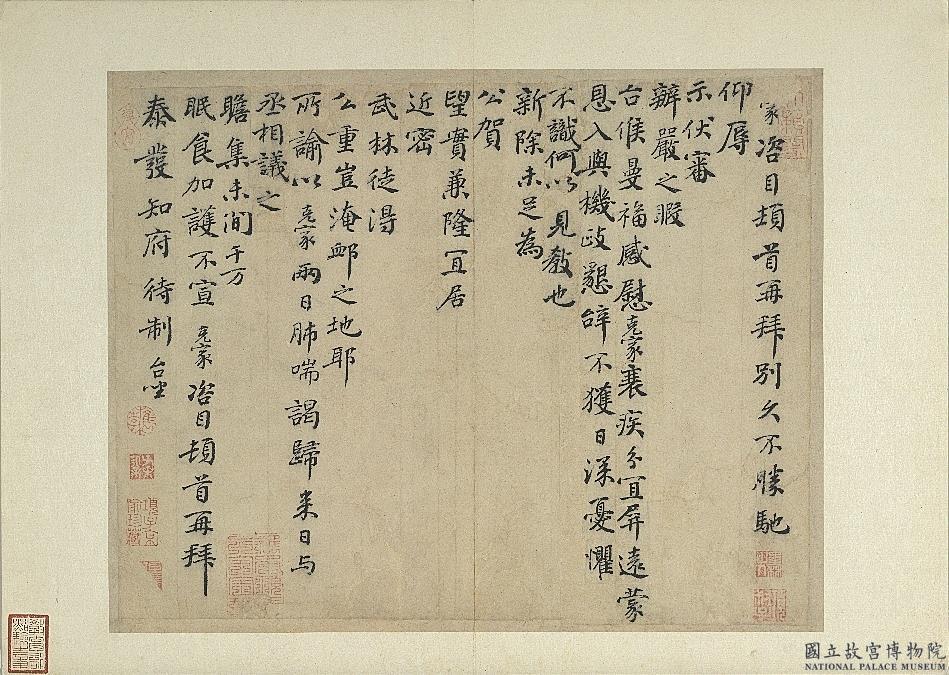 家咨目頓首再拜別久不勝馳
仰辱
示伏審
辦嚴之暇
台候曼福感慰克家衰疾分宜屏遠蒙
恩入與機政懇辭不獲日深憂懼
不識何以見教也
新除未足為
公賀
望實兼隆宜居
近密
武林徒得
公重豈淹郵之地耶
所諭以克家兩日肺喘謁歸来日与
丞相議之
瞻集未間千万
眠食加護不宣克家咨目頓首再拜
泰發知府待制台坐
國立故宮博物院
NATIONAL PALACE MUSEUM